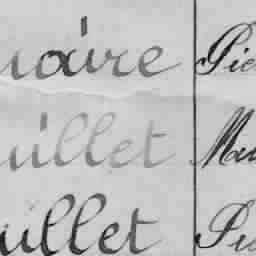 uaire Pie
uillet Mau
uillet Pi